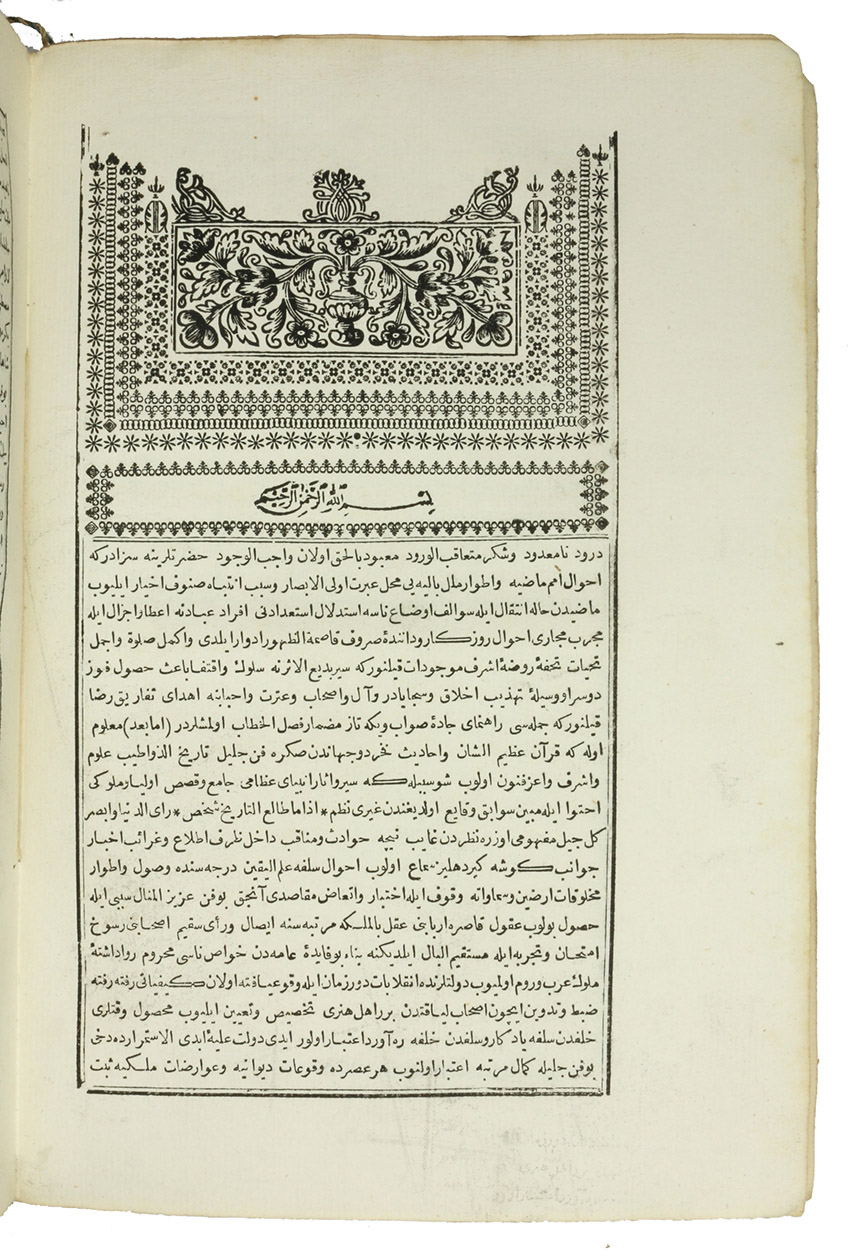 بسم الله الرحمن الرحيم
درود نامعدود وشكر متعاقب الورود معبود بالحق اولان واجب الوجود حضرتلرينه سزادركه
احوال امم ماضيه واطوار ملل باليه يى محل عبرت اولى الابصار وسبب انتباه صنوف اخيار ايليوب
ماضيدن حاله انتقال ايله سوالف اوضاع ناسه استدلال استعدادنى افراد عبادنه اعطا برا جزال ايله
مجرب مجارى احوال روزكار وداننده صروف قاصمة الظهور ادوار ايلدى واكمل صلوة واجمل
تحيات تحفهٔ روضهٔ اشرف موجودات قيلنوركه سير بديع الاثرنه سلوك واقتفا باعث حصول فوز
دوسرا ووسيلهٔ تهذيب اخلاق وسجايادر وآل واصحاب وعترت واحبابنه اهداى تفاريق رضا
قيلنوركه جمله سى راهنماى جادهٔ صواب ويكه تاز مضمار فصل الخطاب اولمشلردر (امابعد) معلوم
اوله كه قرآن عظيم الشان واحاديث فخر دوجهاندن صكره فن جليل تاريخ الذ واطيب علوم
واشرف واعز فنون اولوب شو سببله كه سير وآثار انبياى عظامى جامع وقصص اوليا وملوكى
احتوا ايله مبين سوابق وقايع اولديغندن غيرى نظم * اذا ما طالع التاريخ شخص * راى الدنيا وابصر
كل جيل مفهومى اوزره نظردن غايب نيچه حوادث ومناقب داخل ظرف اطلاع وغرائب اخبار
جوانب كوشه كير دهليز سماع اولوب احوال سلفه علم اليقين درجه سنده وصول واطوار
مخلوقات ارضين وسماواته وقوف ايله اختبار واتعاض مقاصدى آنجق بوفن عزيز المنال سببى ايله
حصول بولوب عقول قاصره اربابنى عقل بالملكه مرتبه سنه ايصال ورأى سقيم اصحابنى رسوخ
امتحان وتجربه ايله مستقيم البال ايلديكنه بناء بوفايدهٔ عامه دن خواص ناسى محروم رواداشتهٔ
ملوك عرب وروم اولميوب دولتلرنده انقلابات دور زمان ايله وقوعيافته اولان كيفياتى رفته رفته
ضبط وتدوين ايچون اصحاب لياقتدن بر اهل هنرى تخصيص وتعيين ايليوب محصول وقتلرى
خلفدن سلفه يادكار وسلفدن خلفه ره آورد اعتبار اولور ايدى دولت عليهٔ ابدى الاستمرارده دخى
بوفن جليله كمال مرتبه اعتبار اولنوب هر عصرده وقوعات ديوانيه وعوارضات ملكيه ثبت